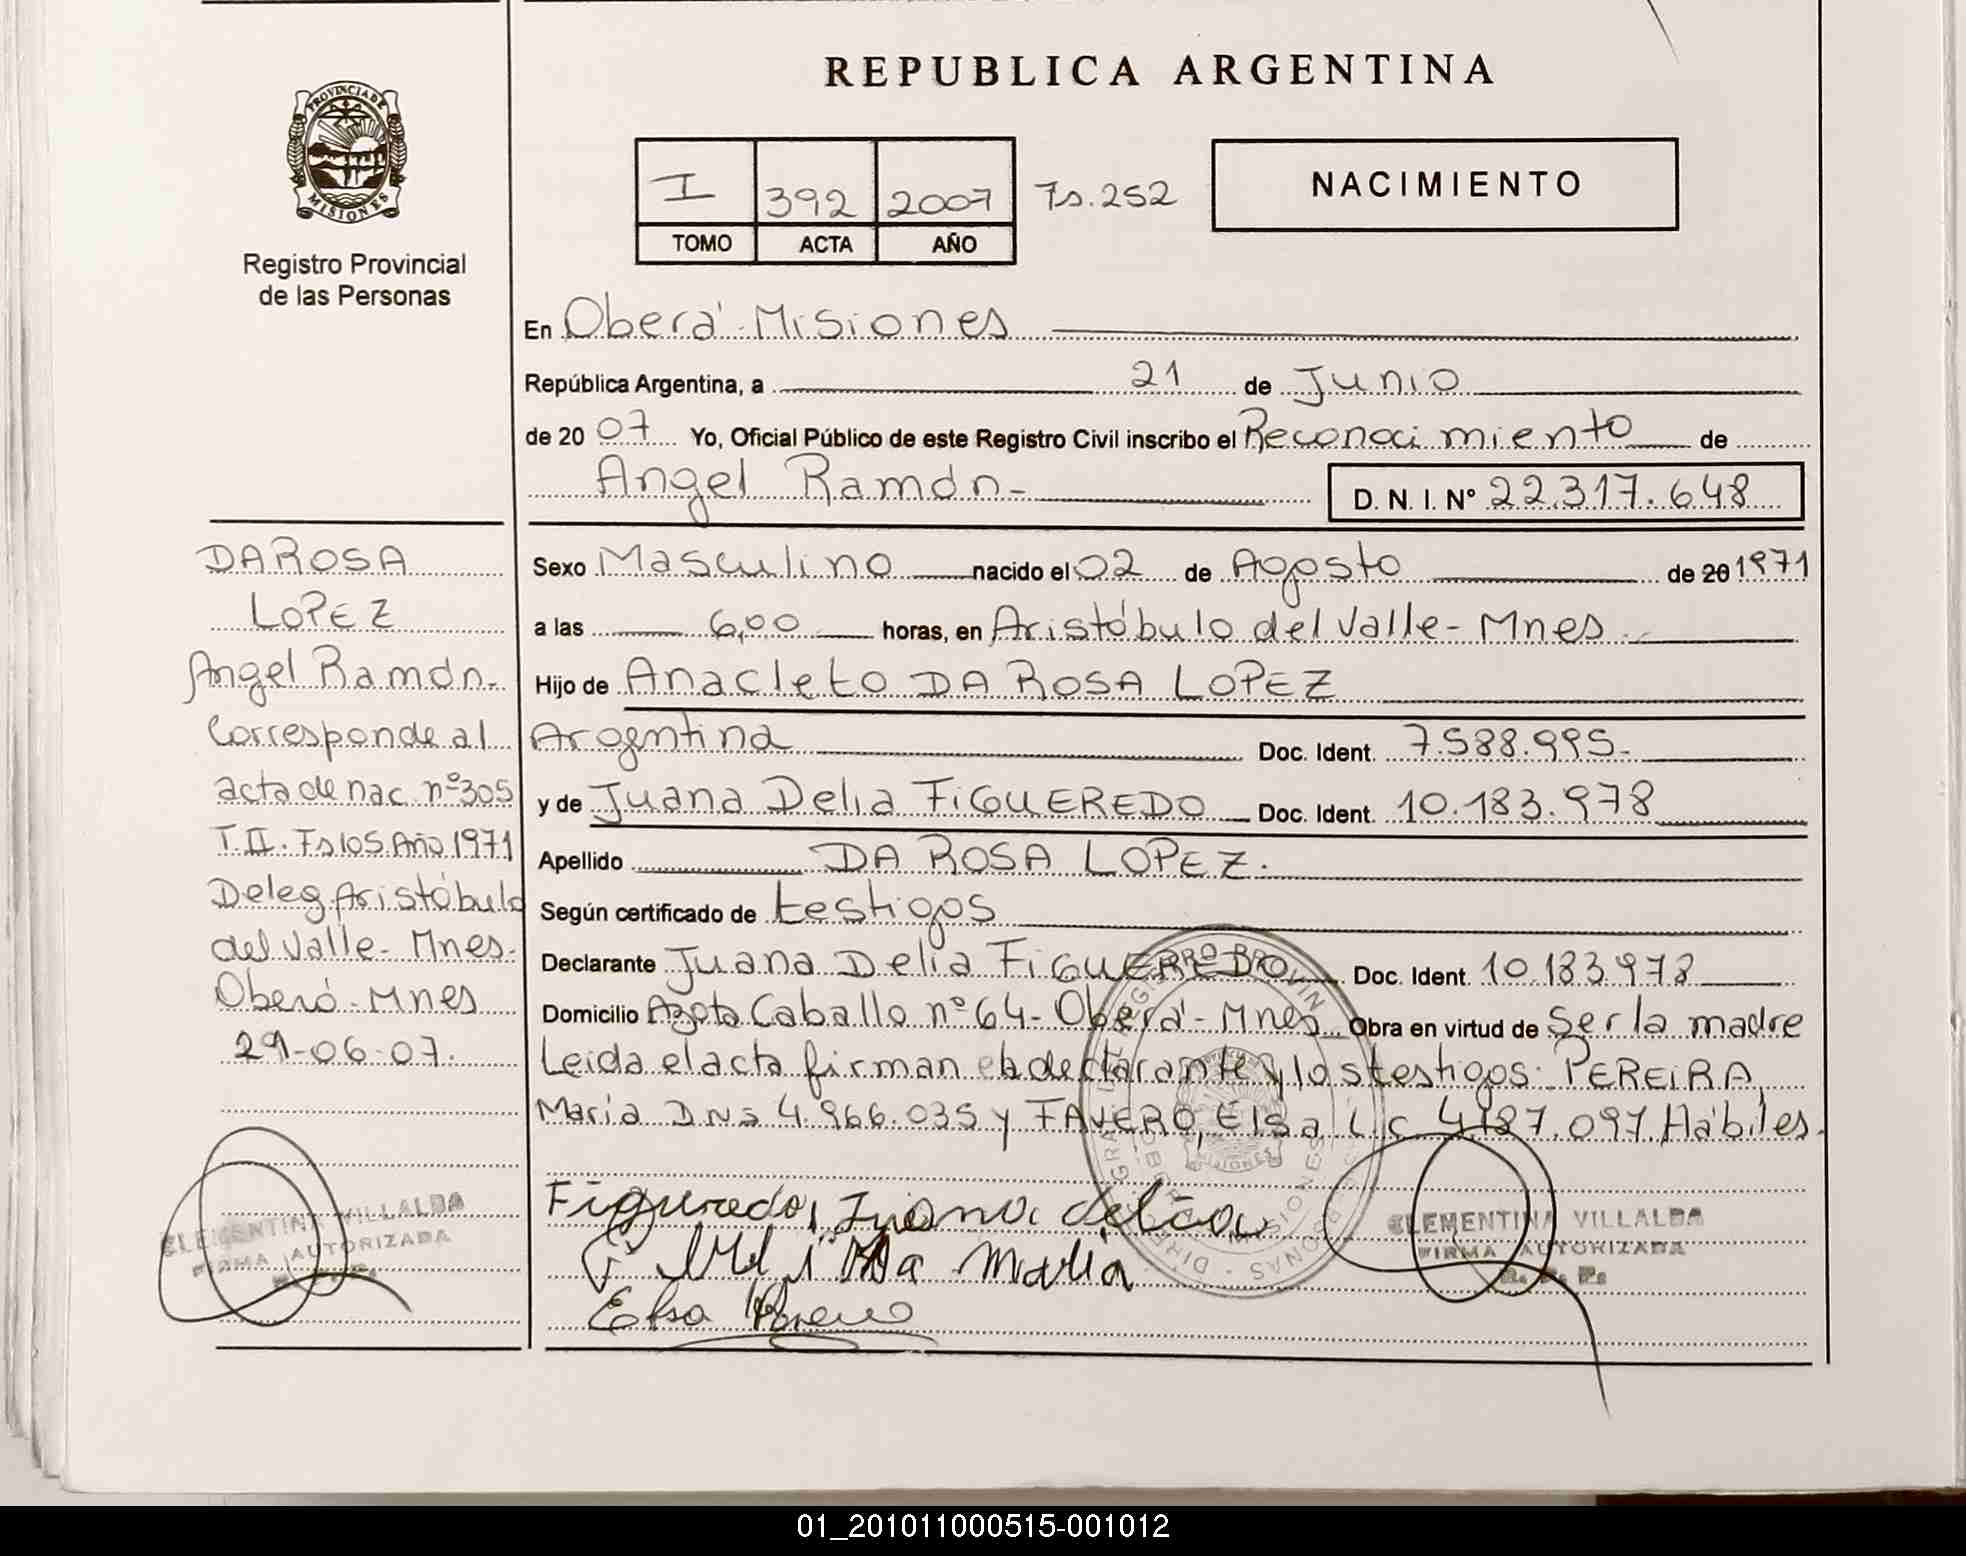 REPUBLICA ARGENTINA
PROVINCIA DE MISIONES
Registro Provincial
de las Personas
I 392 2007 Fs. 252
TOMO ACTA AÑO
NACIMIENTO
En Oberá - Misiones
República Argentina, a 21 de Junio
de 20 07 Yo, Oficial Público de este Registro Civil inscribo el Reconocimiento de
Angel Ramón - D. N. I. Nº 22.317.648
DA ROSA
LOPEZ
Angel Ramón -
Corresponde al
acta de nac. nº 305
T. II. Fs 105 Año 1971
Deleg Aristóbulo
del Valle - Mnes -
Oberá - Mnes
29-06-07.
CLEMENTINA VILLALBA
FIRMA AUTORIZADA
Sexo Masculino nacido el 02 de Agosto de 20 1971
a las 6,00 horas, en Aristóbulo del Valle - Mnes
Hijo de Anacleto DA ROSA LOPEZ
Argentina Doc. Ident. 7.588.995.
y de Juana Delia FIGUEREDO Doc. Ident. 10.183.978
Apellido DA ROSA LOPEZ.
Según certificado de testigos
Declarante Juana Delia FIGUEREDO Doc. Ident. 10.183.978
Domicilio Azota Caballo nº 64 - Oberá - Mnes Obra en virtud de Ser la madre
Leida el acta firman la declarante y los testigos: PEREIRA,
Maria DNs 4.966.035 y FAVERO, Elsa L.C. 4.187.097. Hábiles.
Figueredo, Juana delia
Maria
Elsa
CLEMENTINA VILLALBA
FIRMA AUTORIZADA
R. P. P.
01_201011000515-001012